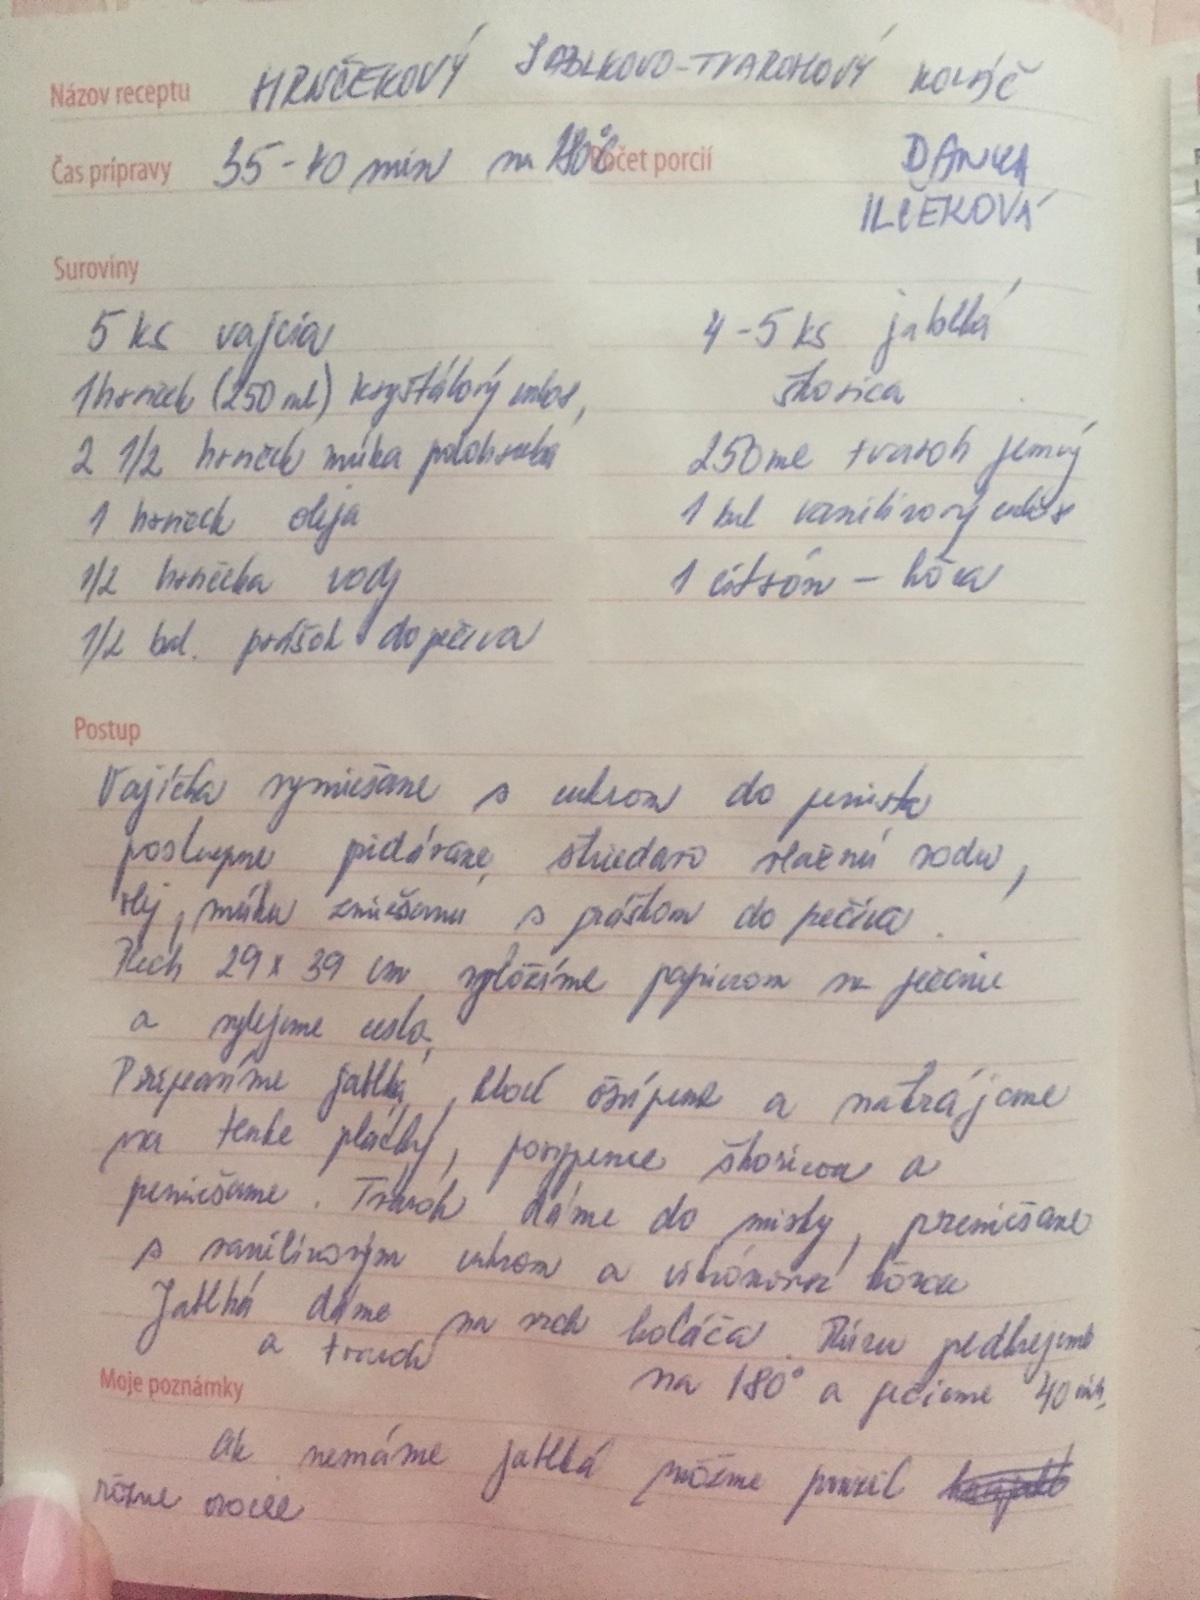 Názov receptu HRNČEKOVÝ JABLKOVO-TVAROHOVÝ KOLÁČ
Čas prípravy 35-40 min na 180°C Počet porcií DANKA
ILČEKOVÁ
Suroviny
5 ks vajcia
1 hrnček (250 ml) kryštálový cukor,
2 1/2 hrnček múka polohrubá
1 hrnček oleja
1/2 hrnčeka vody
1/2 bal. prášok do pečiva
4-5 ks jablká
škorica
250 ml tvaroh jemný
1 bal vanilínový cukor
1 citrón - kôra
Postup
Vajíčka vymiešame s cukrom do peny
postupne pridávame, striedavo vlažnú vodu,
olej, múku zmiešanú s práškom do pečiva.
Plech 29 x 39 cm vyložíme papierom na pečenie
a vylejeme cesto,
Pripravíme jablká, ktoré ošúpeme a nakrájame
na tenké plátky, posypeme škoricou a
premiešame. Tvaroh dáme do misky, premiešame
s vanilínovým cukrom a citrónovou kôrou
Jablká dáme na vrch koláča. Rúru predhrejeme
a tvaroh
na 180° a pečieme 40 min,
Moje poznámky
Ak nemáme jablká môžme použiť
rôzne ovocie